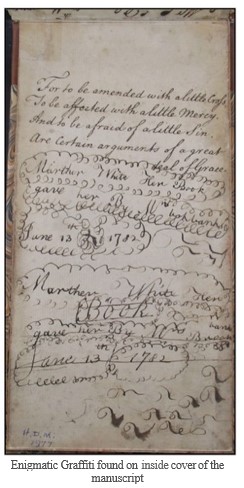 For to be amended with a little Cross,
To be affected with a little Mercy.
And to be afraid of a little Sin.
Are Certain arguments of a great
deal of Grace
Marther White Her Book
gave her By
in
June 13 1782
Marther White Her
Book
gave her By Mrs
in
June 13 1782
H.D.M.
1977
Enigmatic Graffiti found on inside cover of the
manuscript